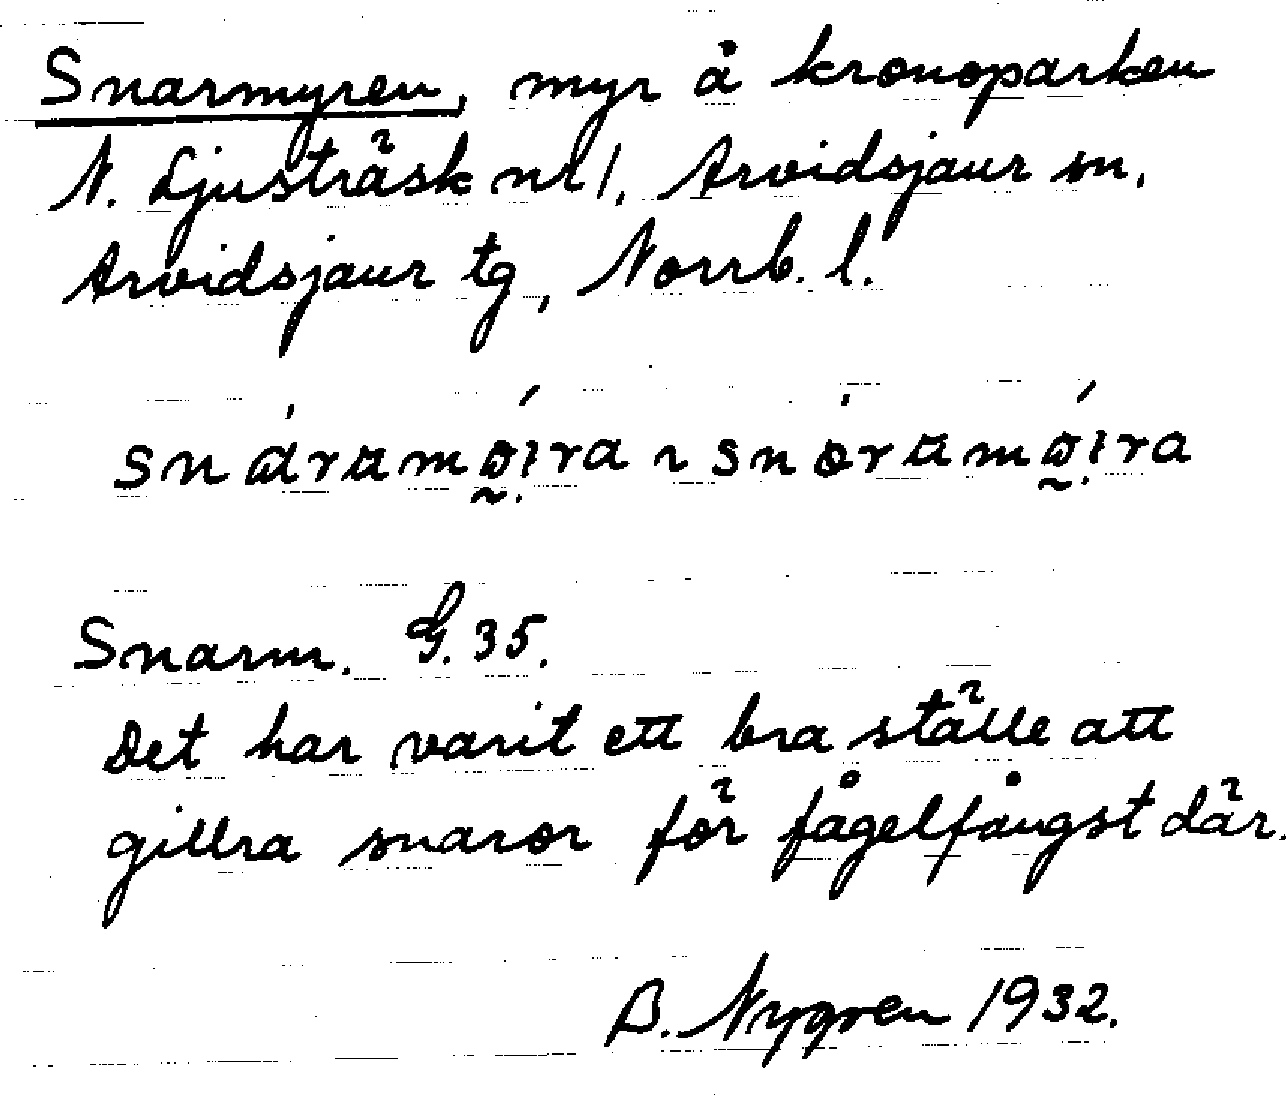 Snarmyren, myr å kronoparken
N. Ljusträsk nr 1, Arvidsjaur sn,
Arvidsjaur tg, Norrb. l.
Snarm. G. 35.
Det har varit ett bra ställe att
gillra snaror för fågelfångst där.
B. Nygren 1932.